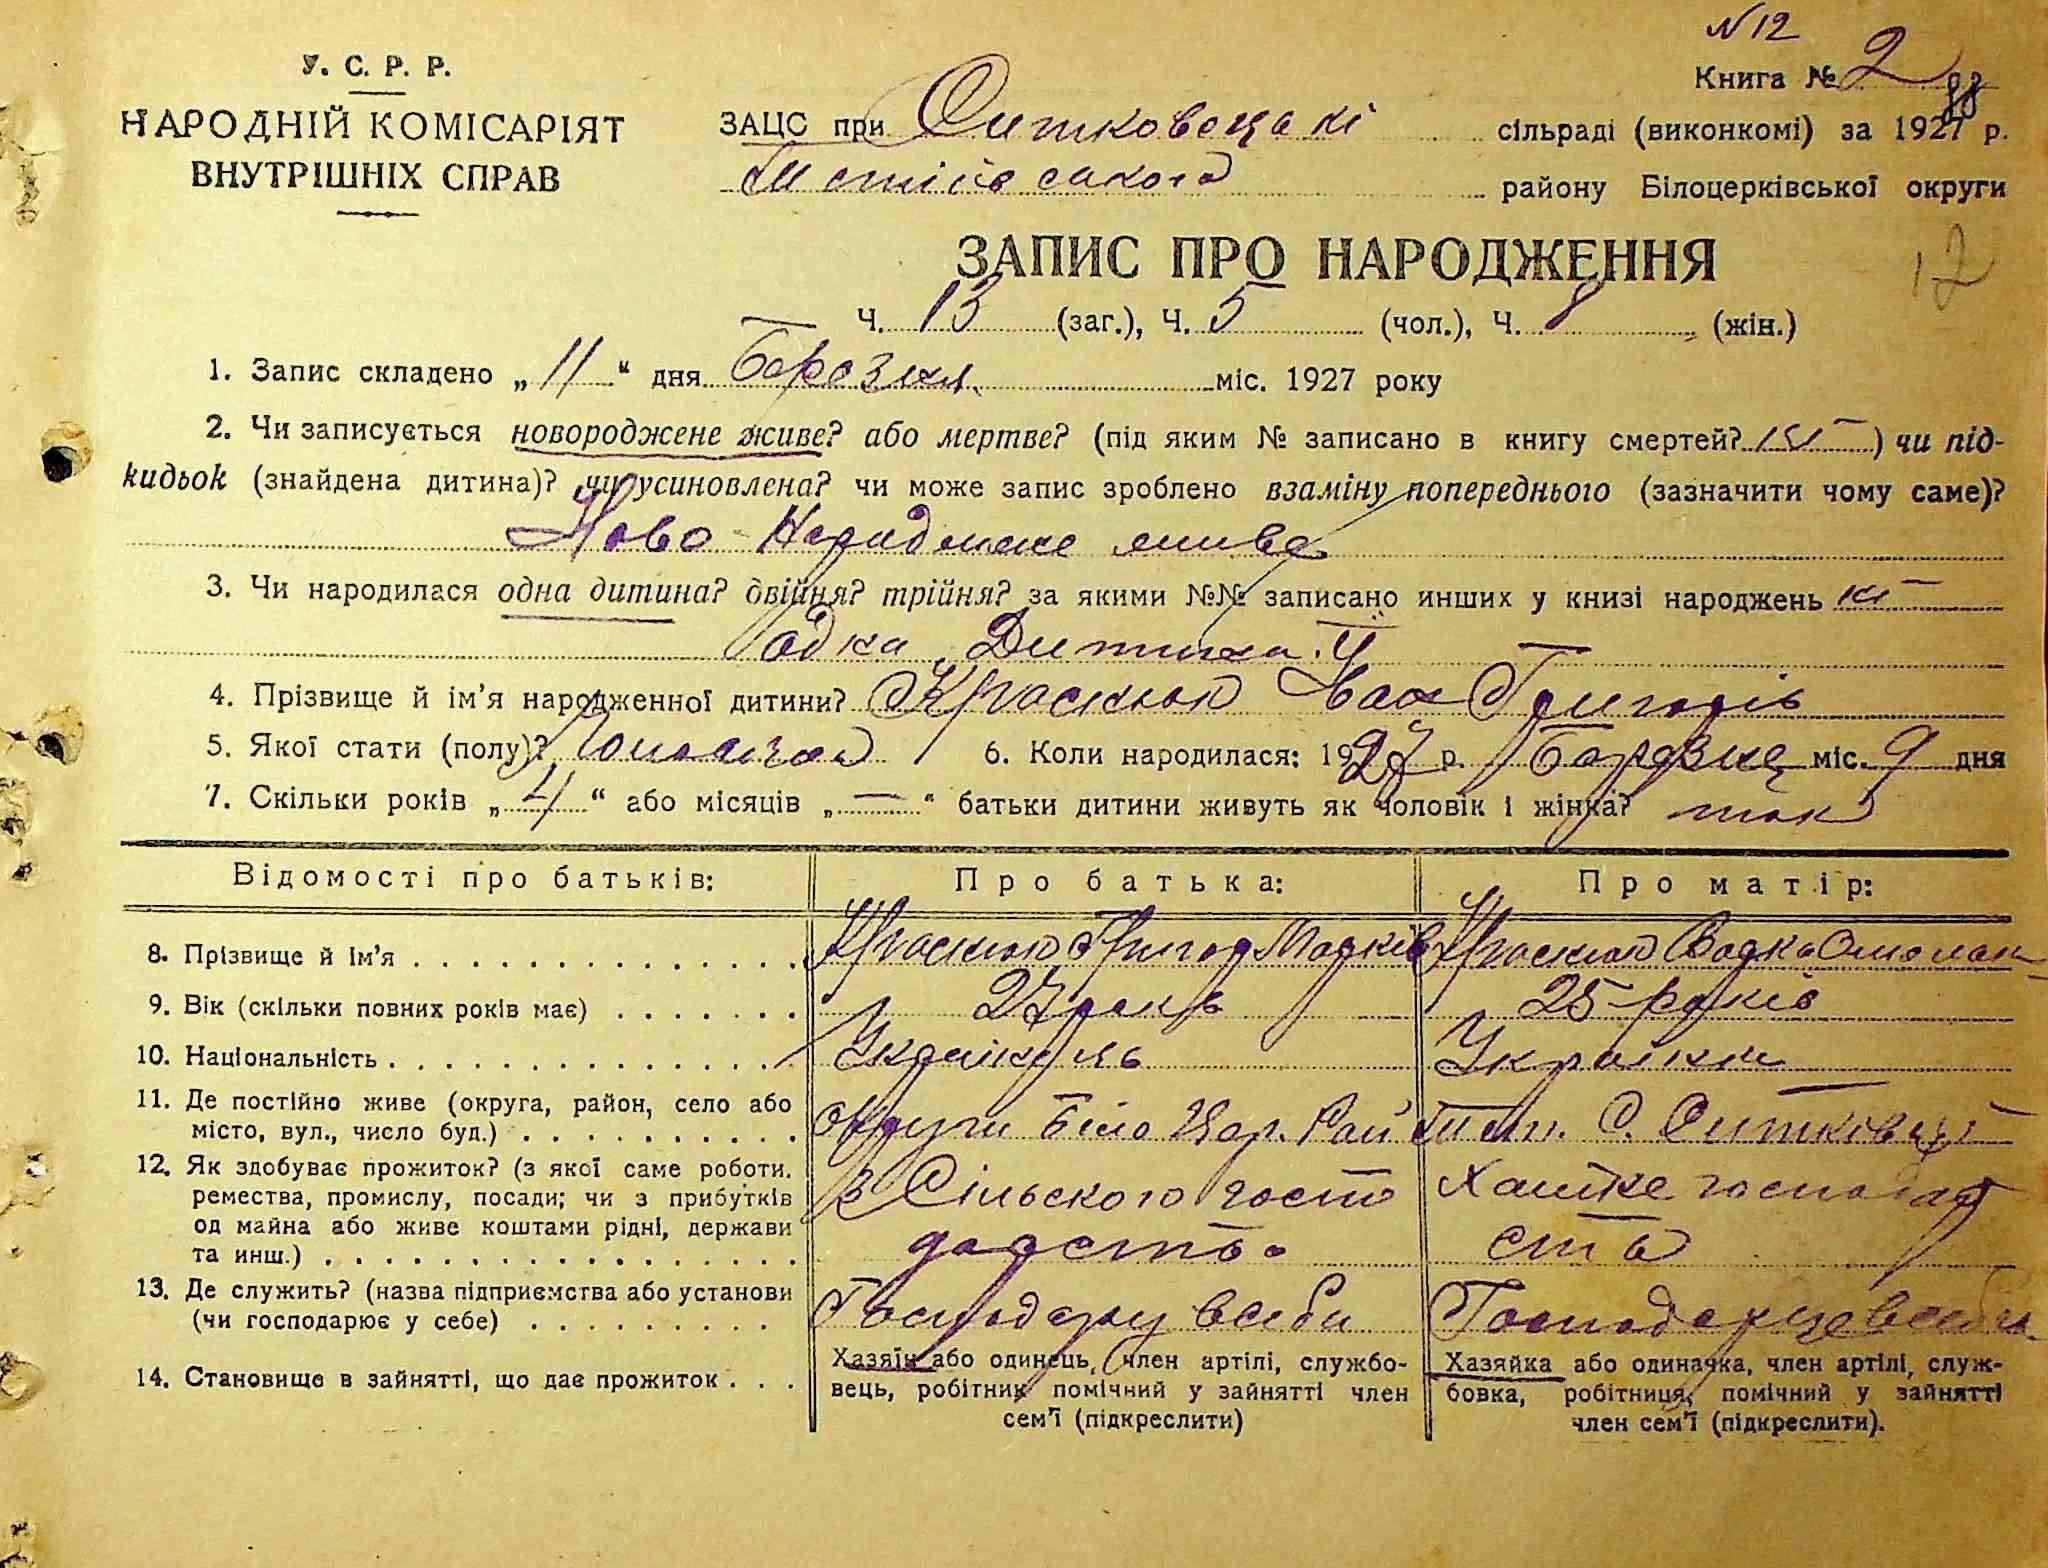 N 12
У. С. Р. Р.
Книга № 2
НАРОДНІЙ КОМІСАРІЯТ
ВНУТРІШНІХ СПРАВ
88
ЗАЦС при Ситковецькі сільраді (виконкомі) за 1927 р.
району Білоцерківської округи
ЗАПИС ПРО НАРОДЖЕННЯ
12
Ч. 13 (заг.), Ч. 5 (чол.), Ч. 8 (жін.)
1. Запис складено „ 11 “ дня Березня міс. 1927 року
2. Чи записується новороджене живе? або мертве? (під яким № записано в книгу смертей? ) чи під-
кидьок (знайдена дитина)? чи усиновлена? чи може запис зроблено взаміну попереднього (зазначити чому саме)?
Ново Народжене живе
3. Чи народилася одна дитина? двійня? трійня? за якими №№ записано инших у книзі народжень
одна Дитина
4. Прізвище й ім'я народженної дитини? Краснюк Іван Григорів
5. Якої стати (полу)? 6. Коли народилася: 1927 р. Березня міс. 9 дня
7. Скільки років „ 4 “ або місяців „ — “ батьки дитини живуть як чоловік і жінка? так
Відомості про батьків: Про батька: Про матір:
8. Прізвище й ім'я . . . Краснюк Григор Марків Краснюк
9. Вік (скільки повних років має) . . . 27 років 25 років
10. Національність . . . Українець Українка
11. Де постійно живе (округа, район, село або
місто, вул., число буд.) . . . Округи Біло Цер. Рай С. Ситківці
12. Як здобуває прожиток? (з якої саме роботи.
ремества, промислу, посади; чи з прибутків з Сільского госпо Хатнє господар
од майна або живе коштами рідні, держави
та инш.) . . . дарства ства
13. Де служить? (назва підприємства або установи
(чи господарює у себе) . . . Господарує всебе Господарує всебе
Хазяїн або одинець, член артілі, службо- Хазяйка або одиначка, член артілі, служ-
14. Становище в зайнятті, що дає прожиток . . . вець, робітник помічний у зайнятті член бовка, робітниця, помічний у зайнятті
сем'ї (підкреслити) член сем'ї (підкреслити).